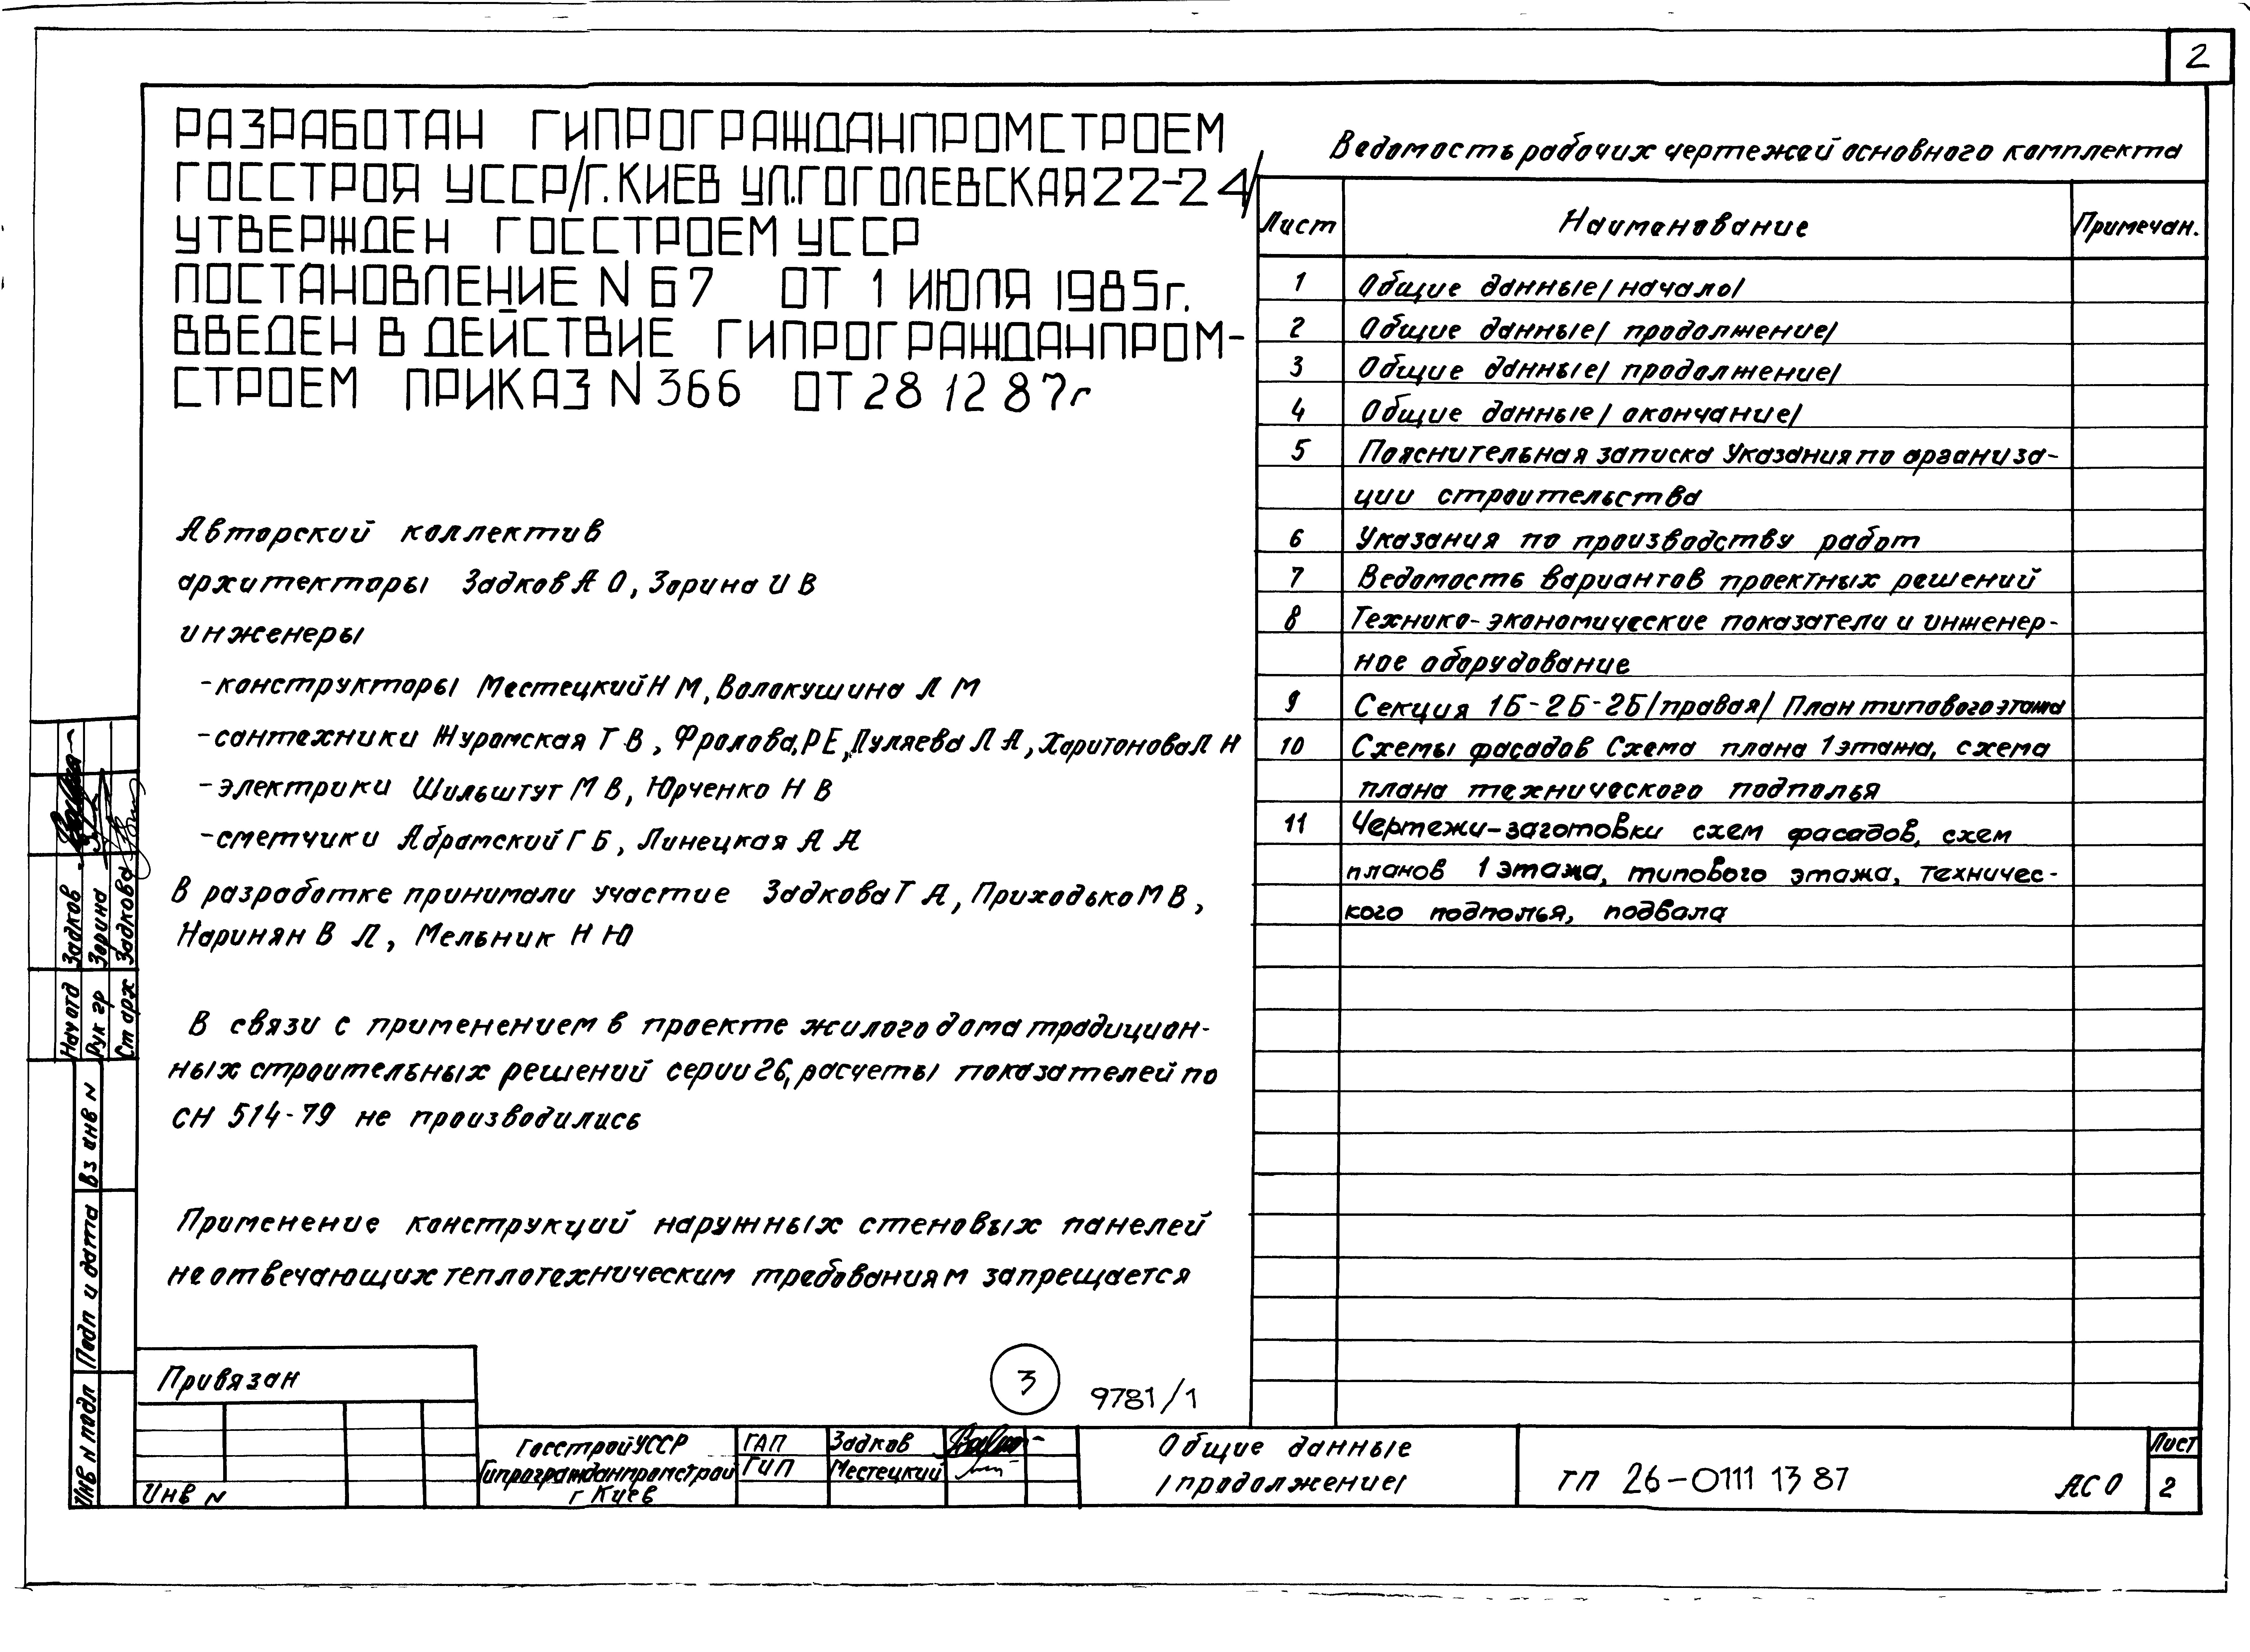 2
РАЗРАБОТАН ГИПРОГРАЖДАНПРОМСТРОЕМ
ГОССТРОЯ УССР/Г.КИЕВ УЛ.ГОГОЛЕВСКАЯ 22-24/
УТВЕРЖДЕН ГОССТРОЕМ УССР
ПОСТАНОВЛЕНИЕ N 67 ОТ 1 ИЮЛЯ 1985г.
ВВЕДЕН В ДЕЙСТВИЕ ГИПРОГРАЖДАНПРОМ-
СТРОЕМ ПРИКАЗ N 366 ОТ 28 12 87г
Авторский коллектив
архитекторы Задков А О, Зорина И В
инженеры
-конструкторы Местецкий Н М, Волокушина Л М
-сантехники Журомская Т В, Фролова, Р Е, Пуляева Л А, Харитонова Л Н
-электрики Шильштут М В, Юрченко Н В
-сметчики Абрамский Г Б, Линецкая А А
В разработке принимали участие Задкова Т А, Приходько М В,
Наринян В Л, Мельник Н Ю
В связи с применением в проекте жилого дома традицион-
ных строительных решений серии 26, расчеты показателей по
СН 514-79 не производились
Применение конструкций наружных стеновых панелей
не отвечающих теплотехническим требованиям запрещается
Ведомость рабочих чертежей основного комплекта
Лист Наименование Примечан.
1 Общие данные /начало/
2 Общие данные /продолжение/
3 Общие данные /продолжение/
4 Общие данные /окончание/
5 Пояснительная записка Указания по органиsа-
ции строительства
6 Указания по производству работ
7 Ведомость вариантов проектных решений
8 Технико-экономические показатели и инженер-
ное оборудование
9 Секция 1Б-2Б-2Б /правая/ План типового этажа
10 Схемы фасадов Схема плана 1 этажа, схема
плана технического подполья
11 Чертежи-заготовки схем фасадов, схем
планов 1 этажа, типового этажа, техничес-
кого подполья, подвала
Нач отд Задков
Рук гр Зорина
Ст арх Задкова
Вз инв N
Подп и дата
Инв N подл
Привязан
Инв N
3
9781/1
Госстрой УССР
Гипрогражданпромстрой
г Киев
ГАП Задков
ГИП Местецкий
Общие данные
/продолжение/
ТП 26-0111 13 87
АС 0
Лист
2